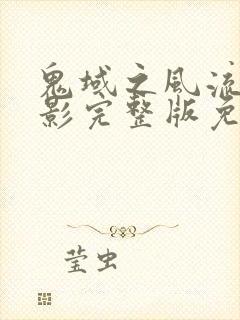 鬼域之风流
影完整版免
莹虫